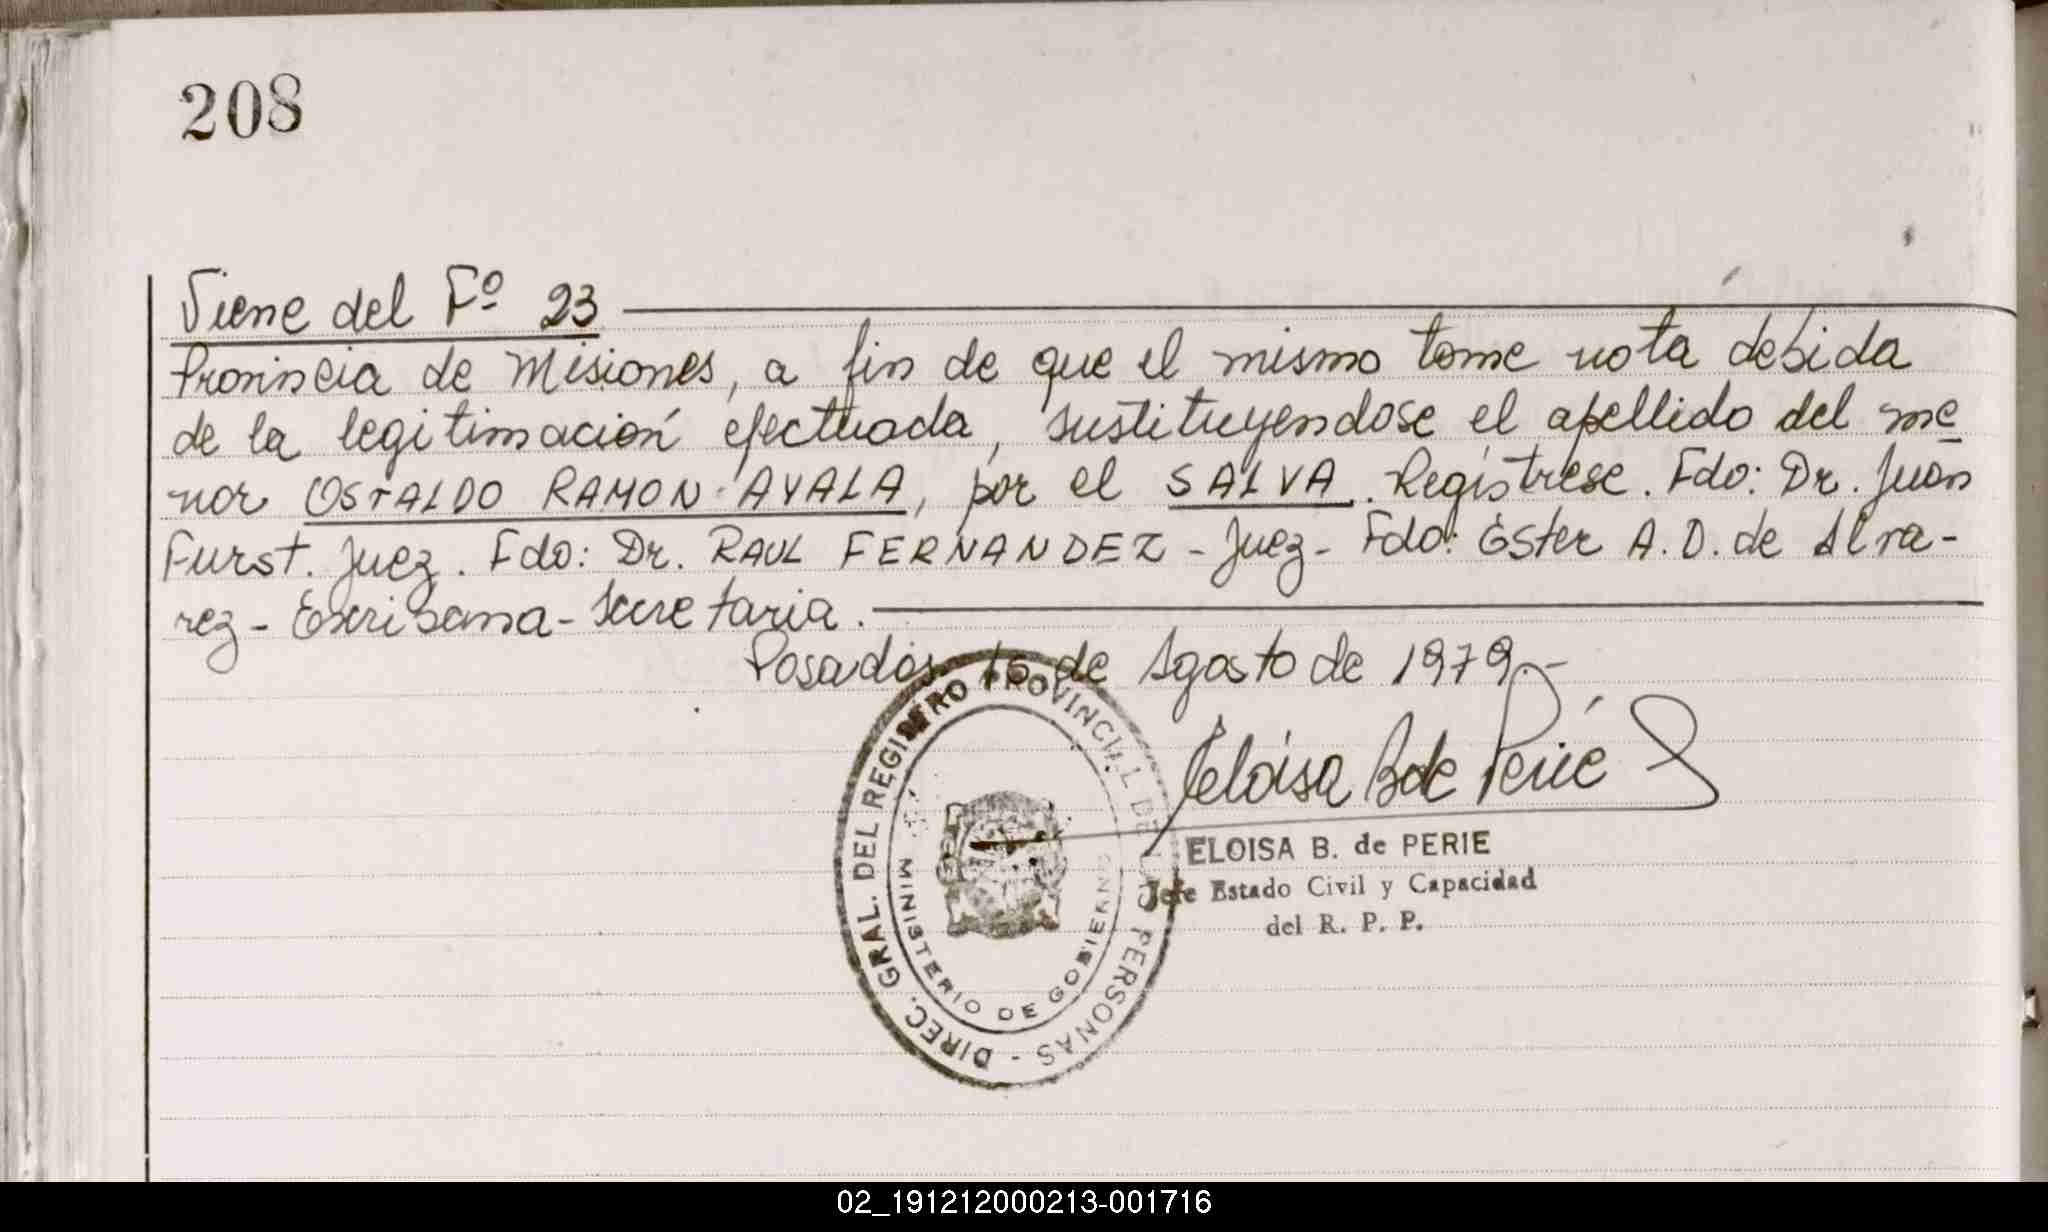 208
Viene del Fº 23
Provincia de Misiones, a fin de que el mismo tome nota debida
de la legitimación efectuada, sustituyendose el apellido del me
nor OSVALDO RAMON AYALA, por el SALVA. Regístrese. Fdo: Dr. Juan
Furst. Juez. Fdo: Dr. RAUL FERNANDEZ - Juez - Fdo: Ester A. D. de Alva-
rez - Escribana - Secretaria.
Posadas, 16 de Agosto de 1979.-
Eloisa B de Perié
ELOISA B. de PERIE
Jefe Estado Civil y Capacidad
del R. P. P.
DIREC. GRAL. DEL REGISTRO PROVINCIAL DE LAS PERSONAS -
MINISTERIO DE GOBIERNO
02_191212000213-001716